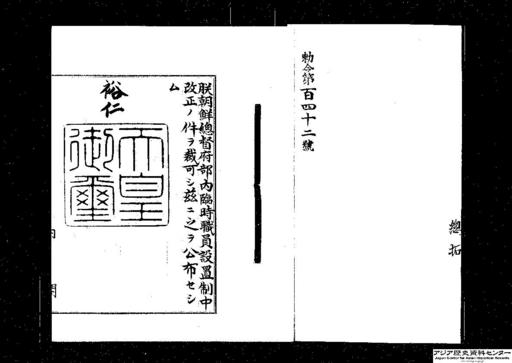 勅令第百四十二號
總拓
朕朝鮮總督府部內臨時職員設置制中
改正ノ件ヲ裁可シ茲ニ之ヲ公布セシ
ム
裕仁
天皇
御璽
内閣
アジア歴史資料センター
Japan Center for Asian Historical Records